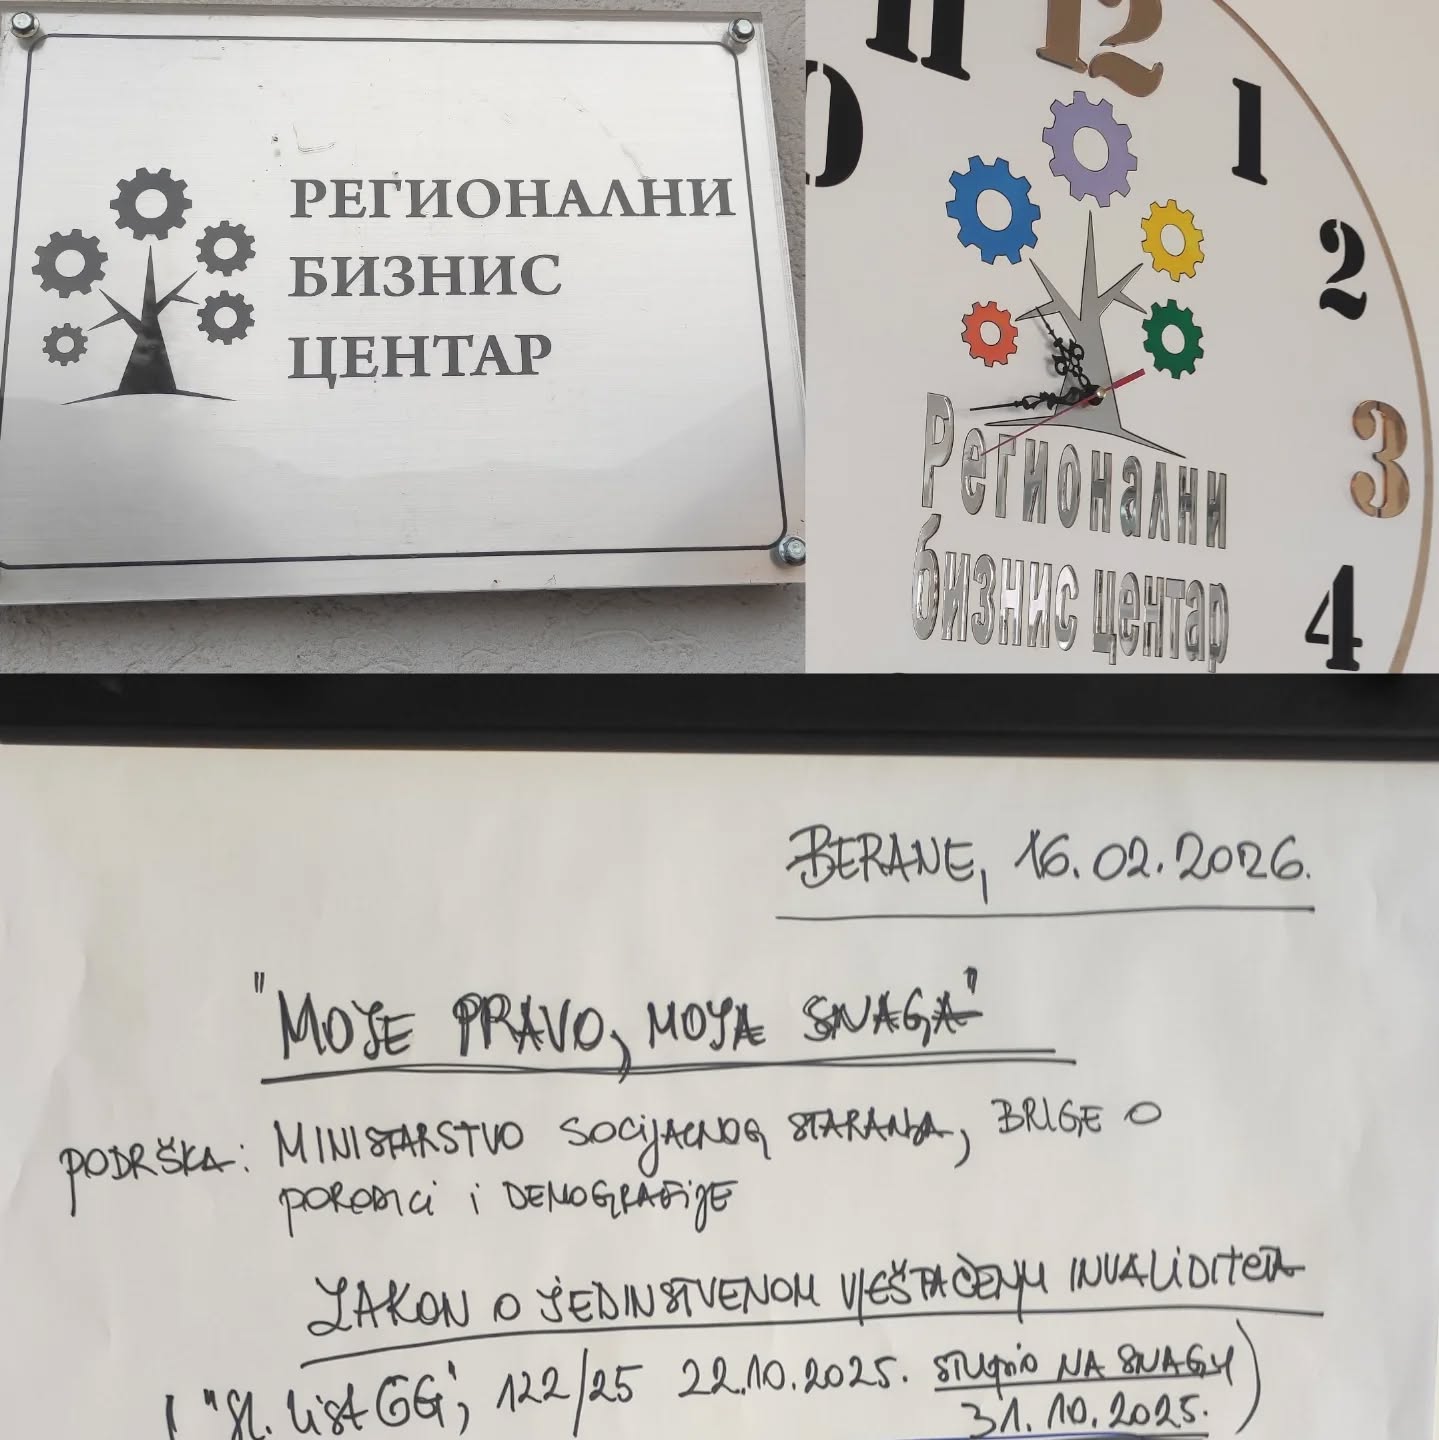 РЕГИОНАЛНИ
БИЗНИС
ЦЕНТАР
11
12
1
2
3
4
Регионални
бизнис центар
BERANE, 16.02.2026.
"MOJE PRAVO, MOJA SNAGA"
PODRŠKA: MINISTARSTVO SOCIJALNOG STARANJA, BRIGE O
PORODICI I DEMOGRAFIJE
ZAKON O JEDINSTVENOM VJEŠTAČENJU INVALIDITETA
("Sl. list CG", 122/25 22.10.2025. STUPIO NA SNAGU
31.10.2025.)